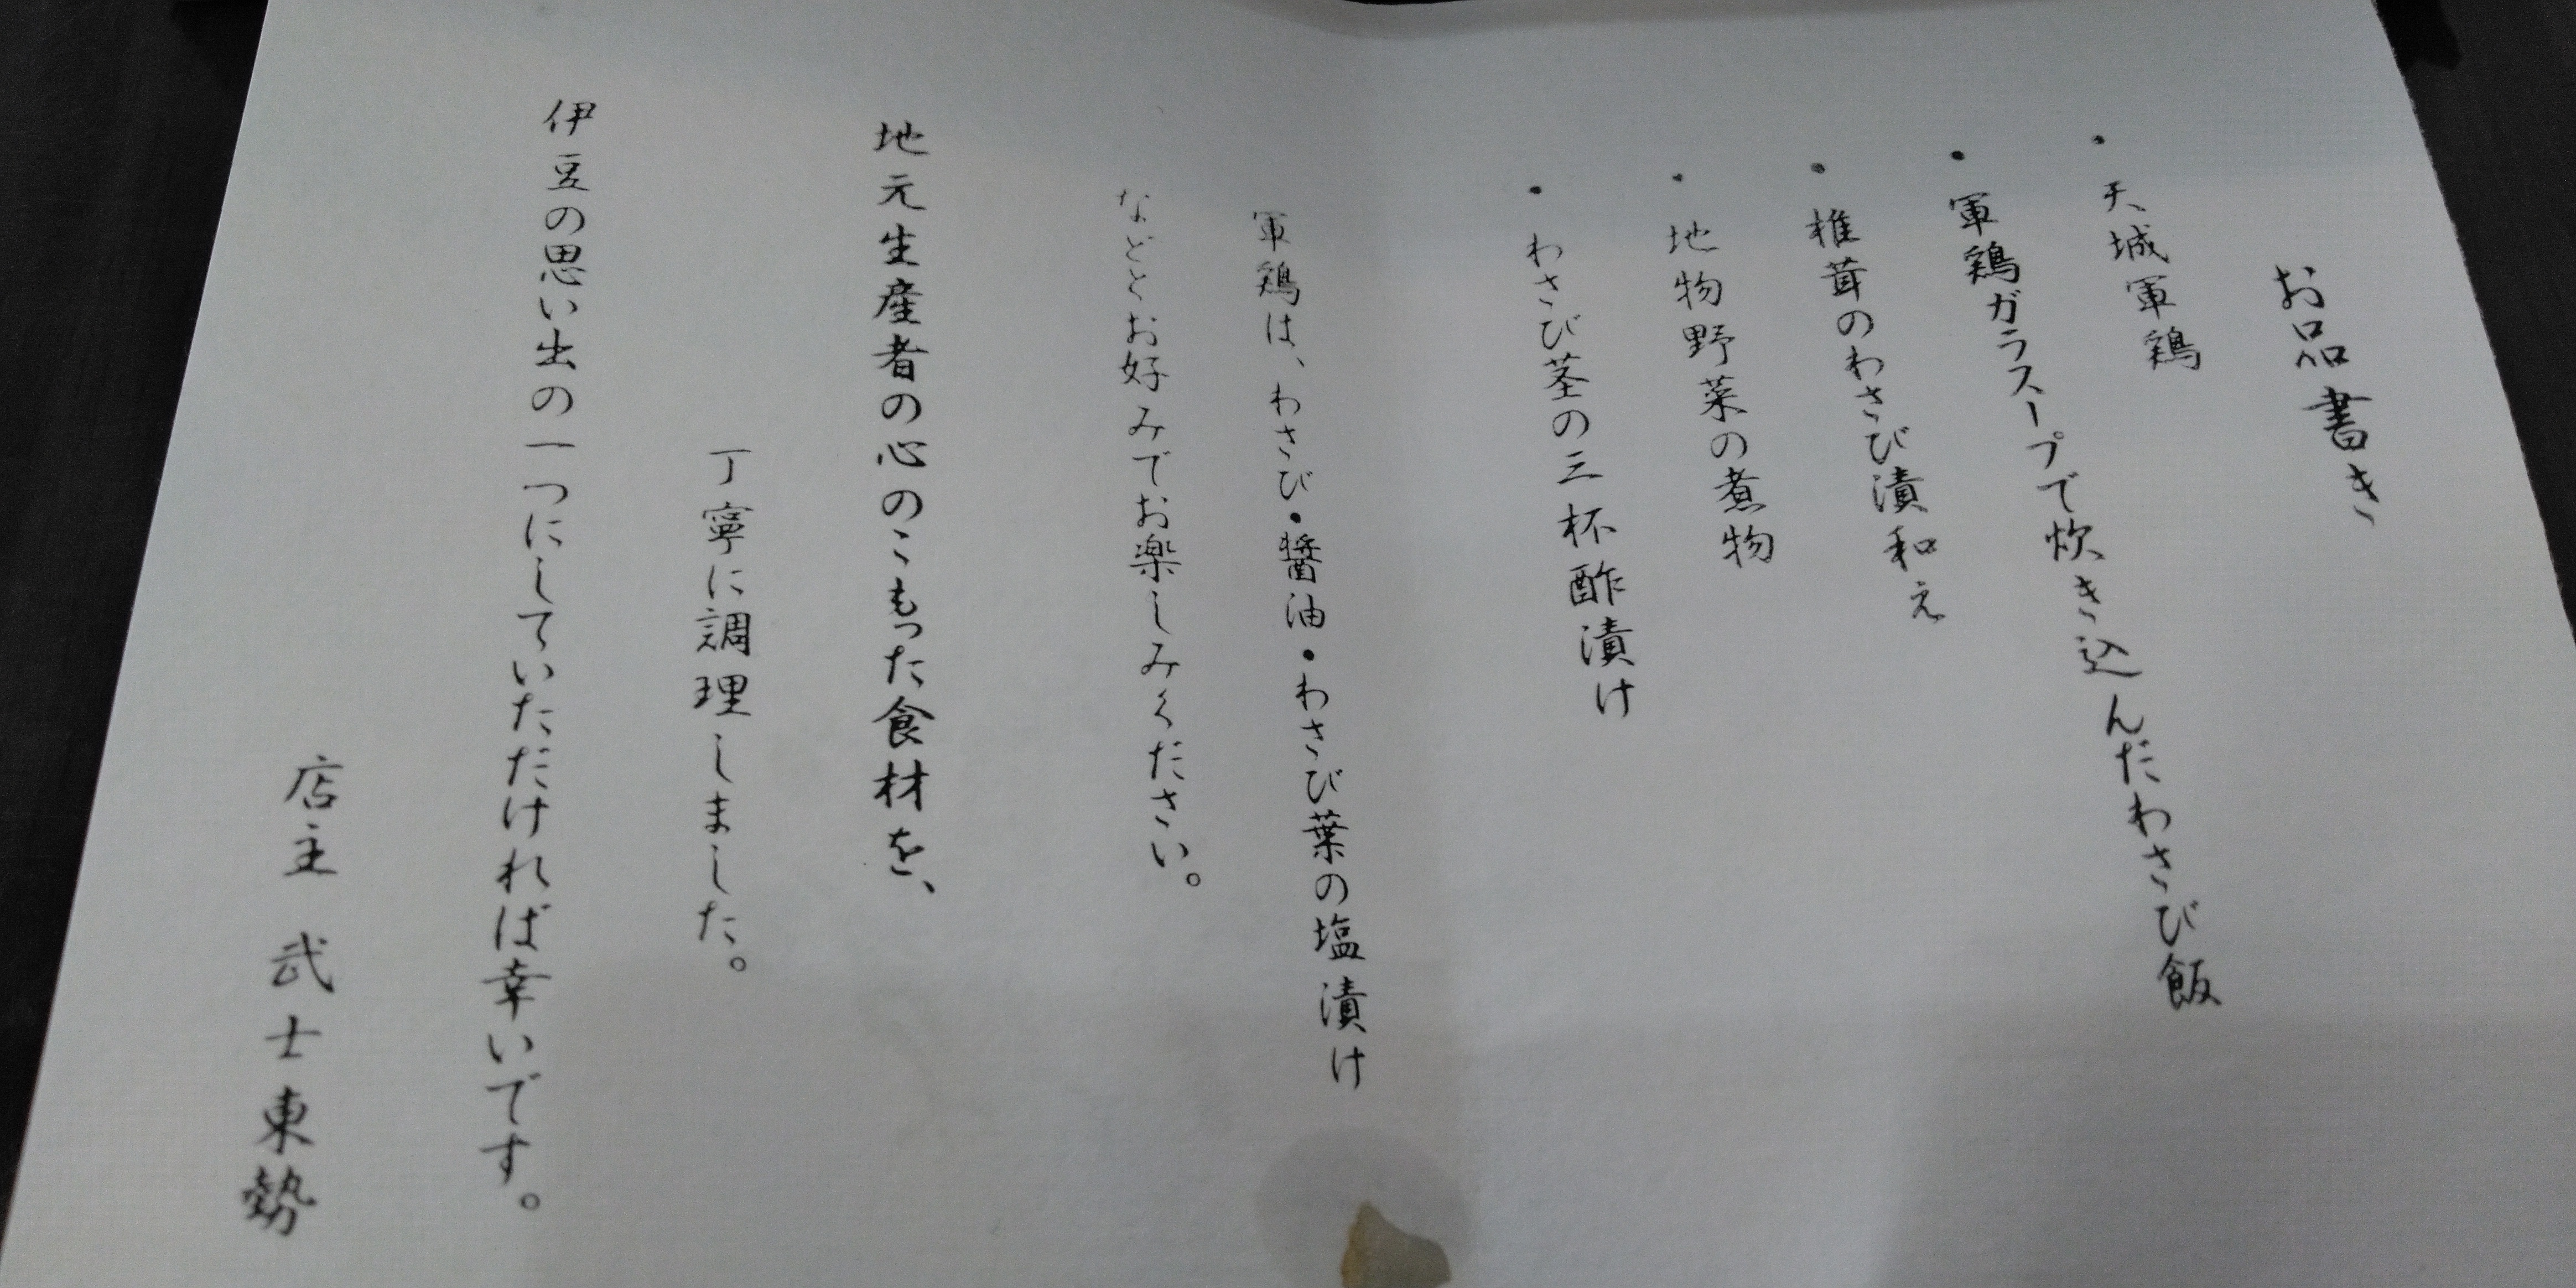 お品書き
・天城軍鶏
・軍鶏ガラスープで炊き込んだわさび飯
・椎茸のわさび漬和え
・地物野菜の煮物
・わさび茎の三杯酢漬け
軍鶏は、わさび・醤油・わさび葉の塩漬け
などとお好みでお楽しみください。
地元生産者の心のこもった食材を、
丁寧に調理しました。
伊豆の思い出の一つにしていただければ幸いです。
店主 武士東勢